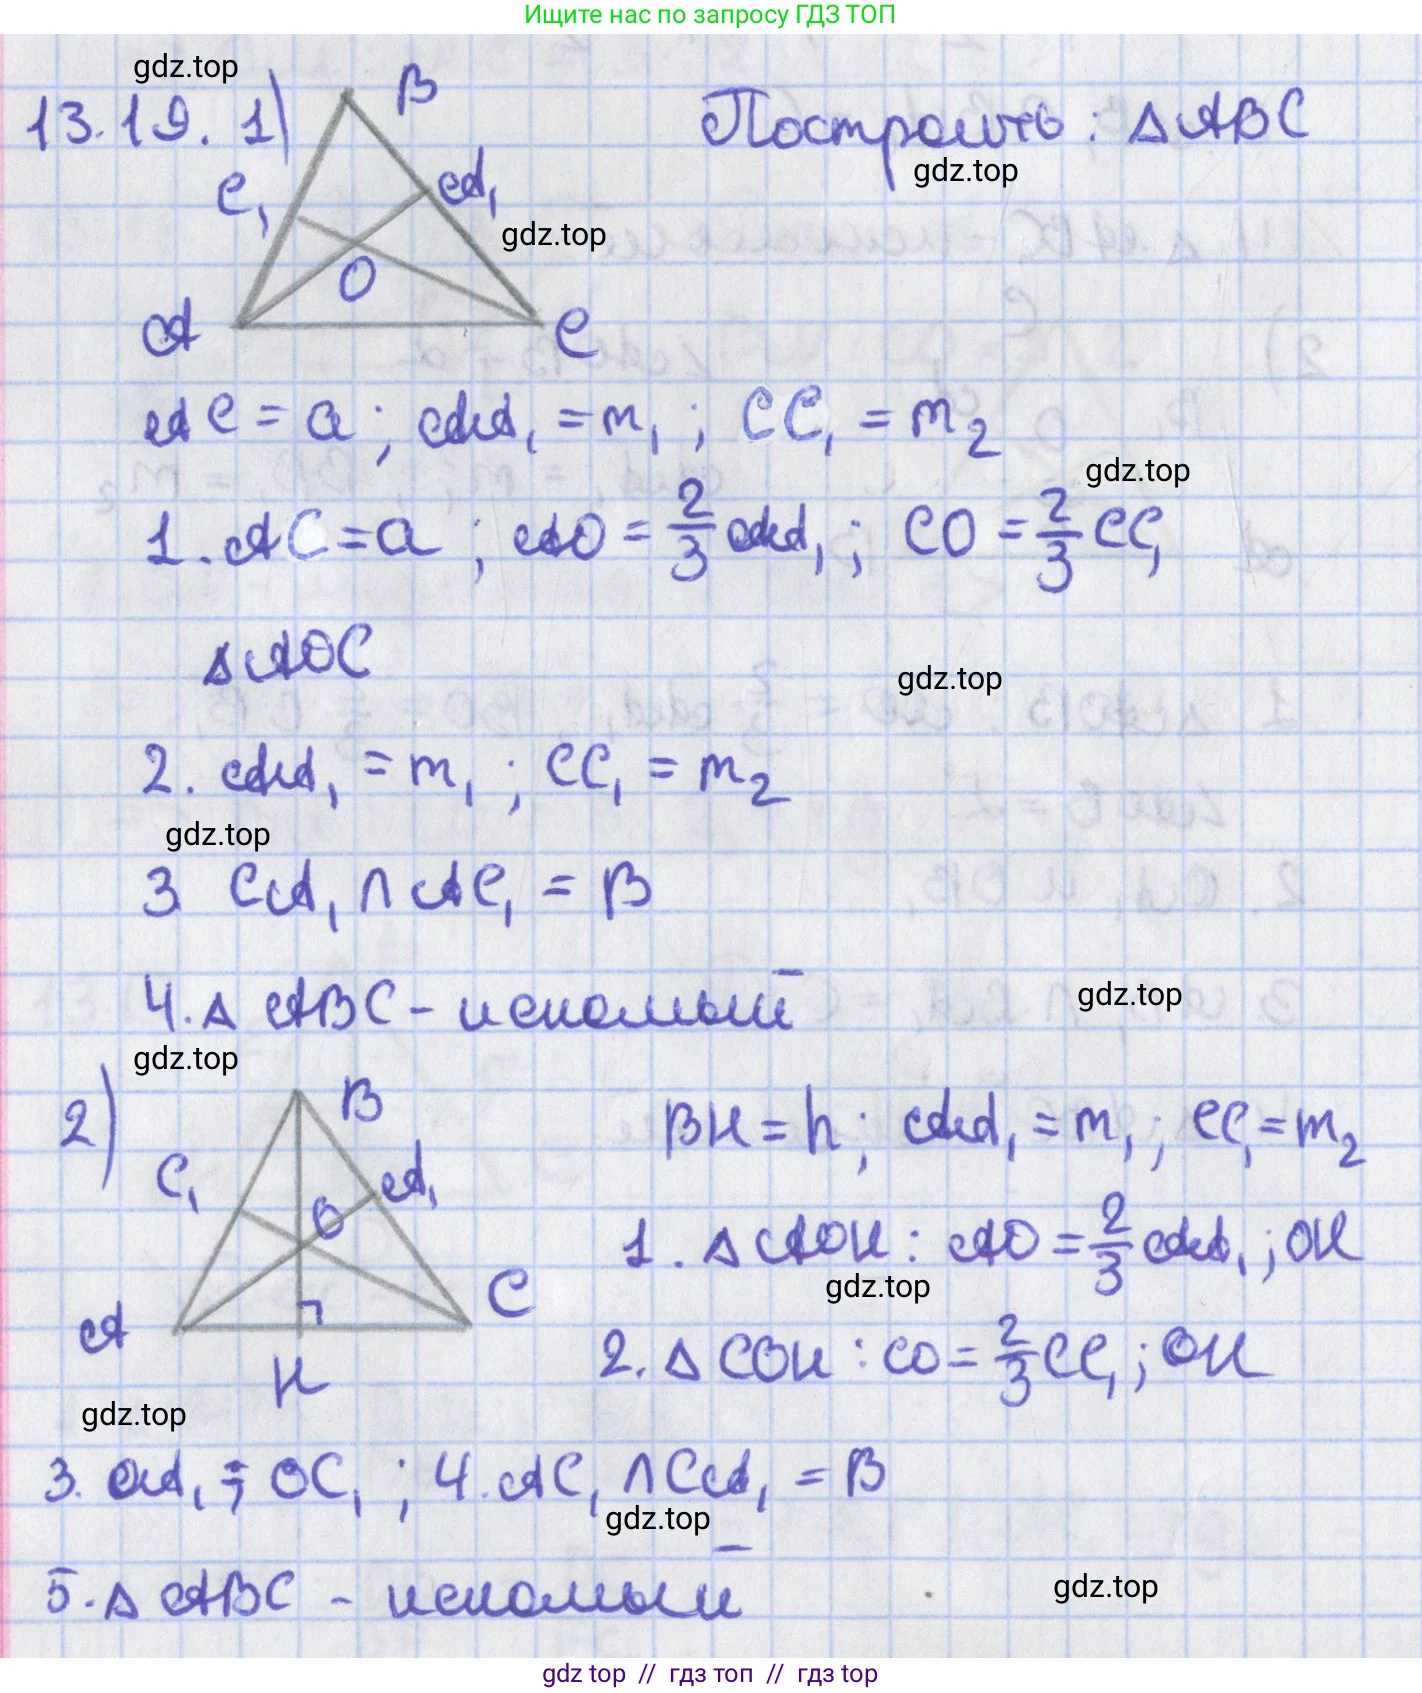 Ищите нас по запросу ГДЗ ТОП
gdz.top
13.19. 1)
B
Построить: △ABC
gdz.top
C₁
A₁
gdz.top
O
A
C
AC = a ; AA₁ = m₁ ; CC₁ = m₂
gdz.top
1. AC = a ; AO = 2/3 AA₁ ; CO = 2/3 CC₁
△AOC
gdz.top
2. AA₁ = m₁ ; CC₁ = m₂
gdz.top
3 CA₁ ∩ AC₁ = B
4. △ ABC - искомый
gdz.top
gdz.top
2)
B
BH = h ; AA₁ = m₁ ; CC₁ = m₂
C₁
A₁
O
1. △AOH : AO = 2/3 AA₁ ; OH
gdz.top
C
A
2. △ COH : CO = 2/3 CC₁ ; OH
H
gdz.top
3. OA₁ ; OC₁ ; 4. AC₁ ∩ CA₁ = B
gdz.top
5. △ ABC - искомый
gdz.top
gdz top // гдз топ // гдз top